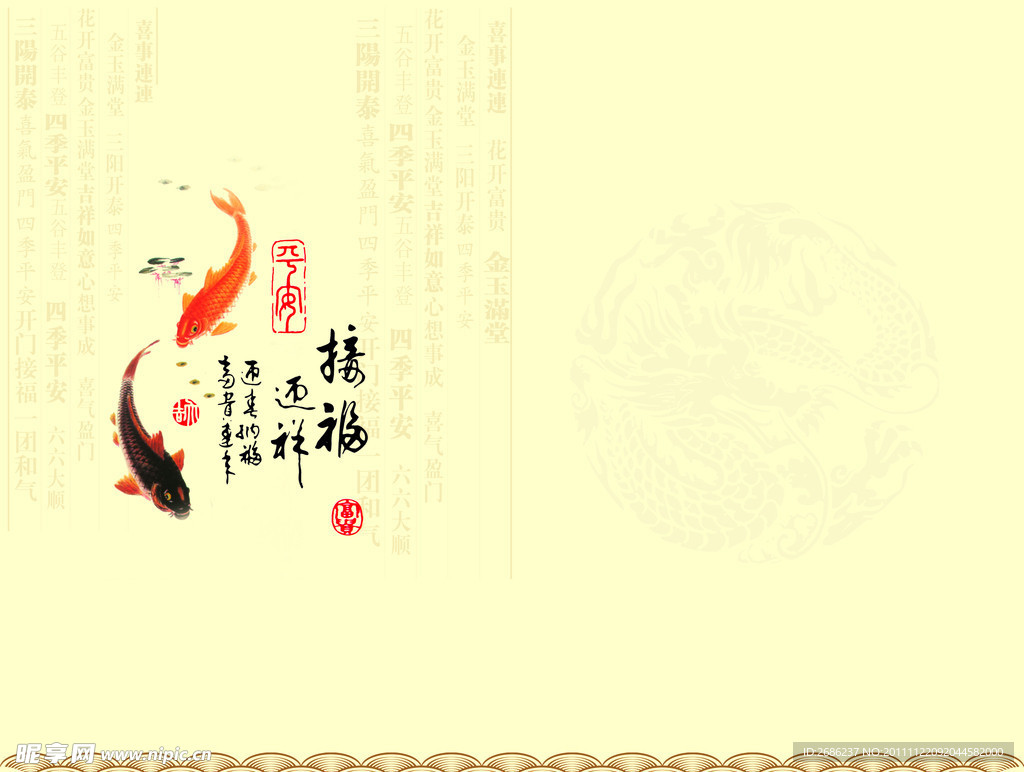 喜事連連
金玉满堂 三阳开泰 四季平安
花开富贵 金玉满堂 吉祥如意 心想事成 喜气盈门
五谷丰登 四季平安 五谷丰登 四季平安 六六大顺
三陽開泰 喜氣盈門 四季平安 开门接福 一团和气
喜事連連 花开富贵 金玉滿堂
金玉满堂 三阳开泰 四季平安
花开富贵 金玉满堂 吉祥如意 心想事成 喜气盈门
五谷丰登 四季平安 五谷丰登 四季平安 六六大顺
三陽開泰 喜氣盈門 四季平安 开门接福 一团和气
平安
接福
迎祥
迎春纳福
富贵连年
富貴
昵享网 www.nipic.cn
ID:2686237 NO:20111122092044582000